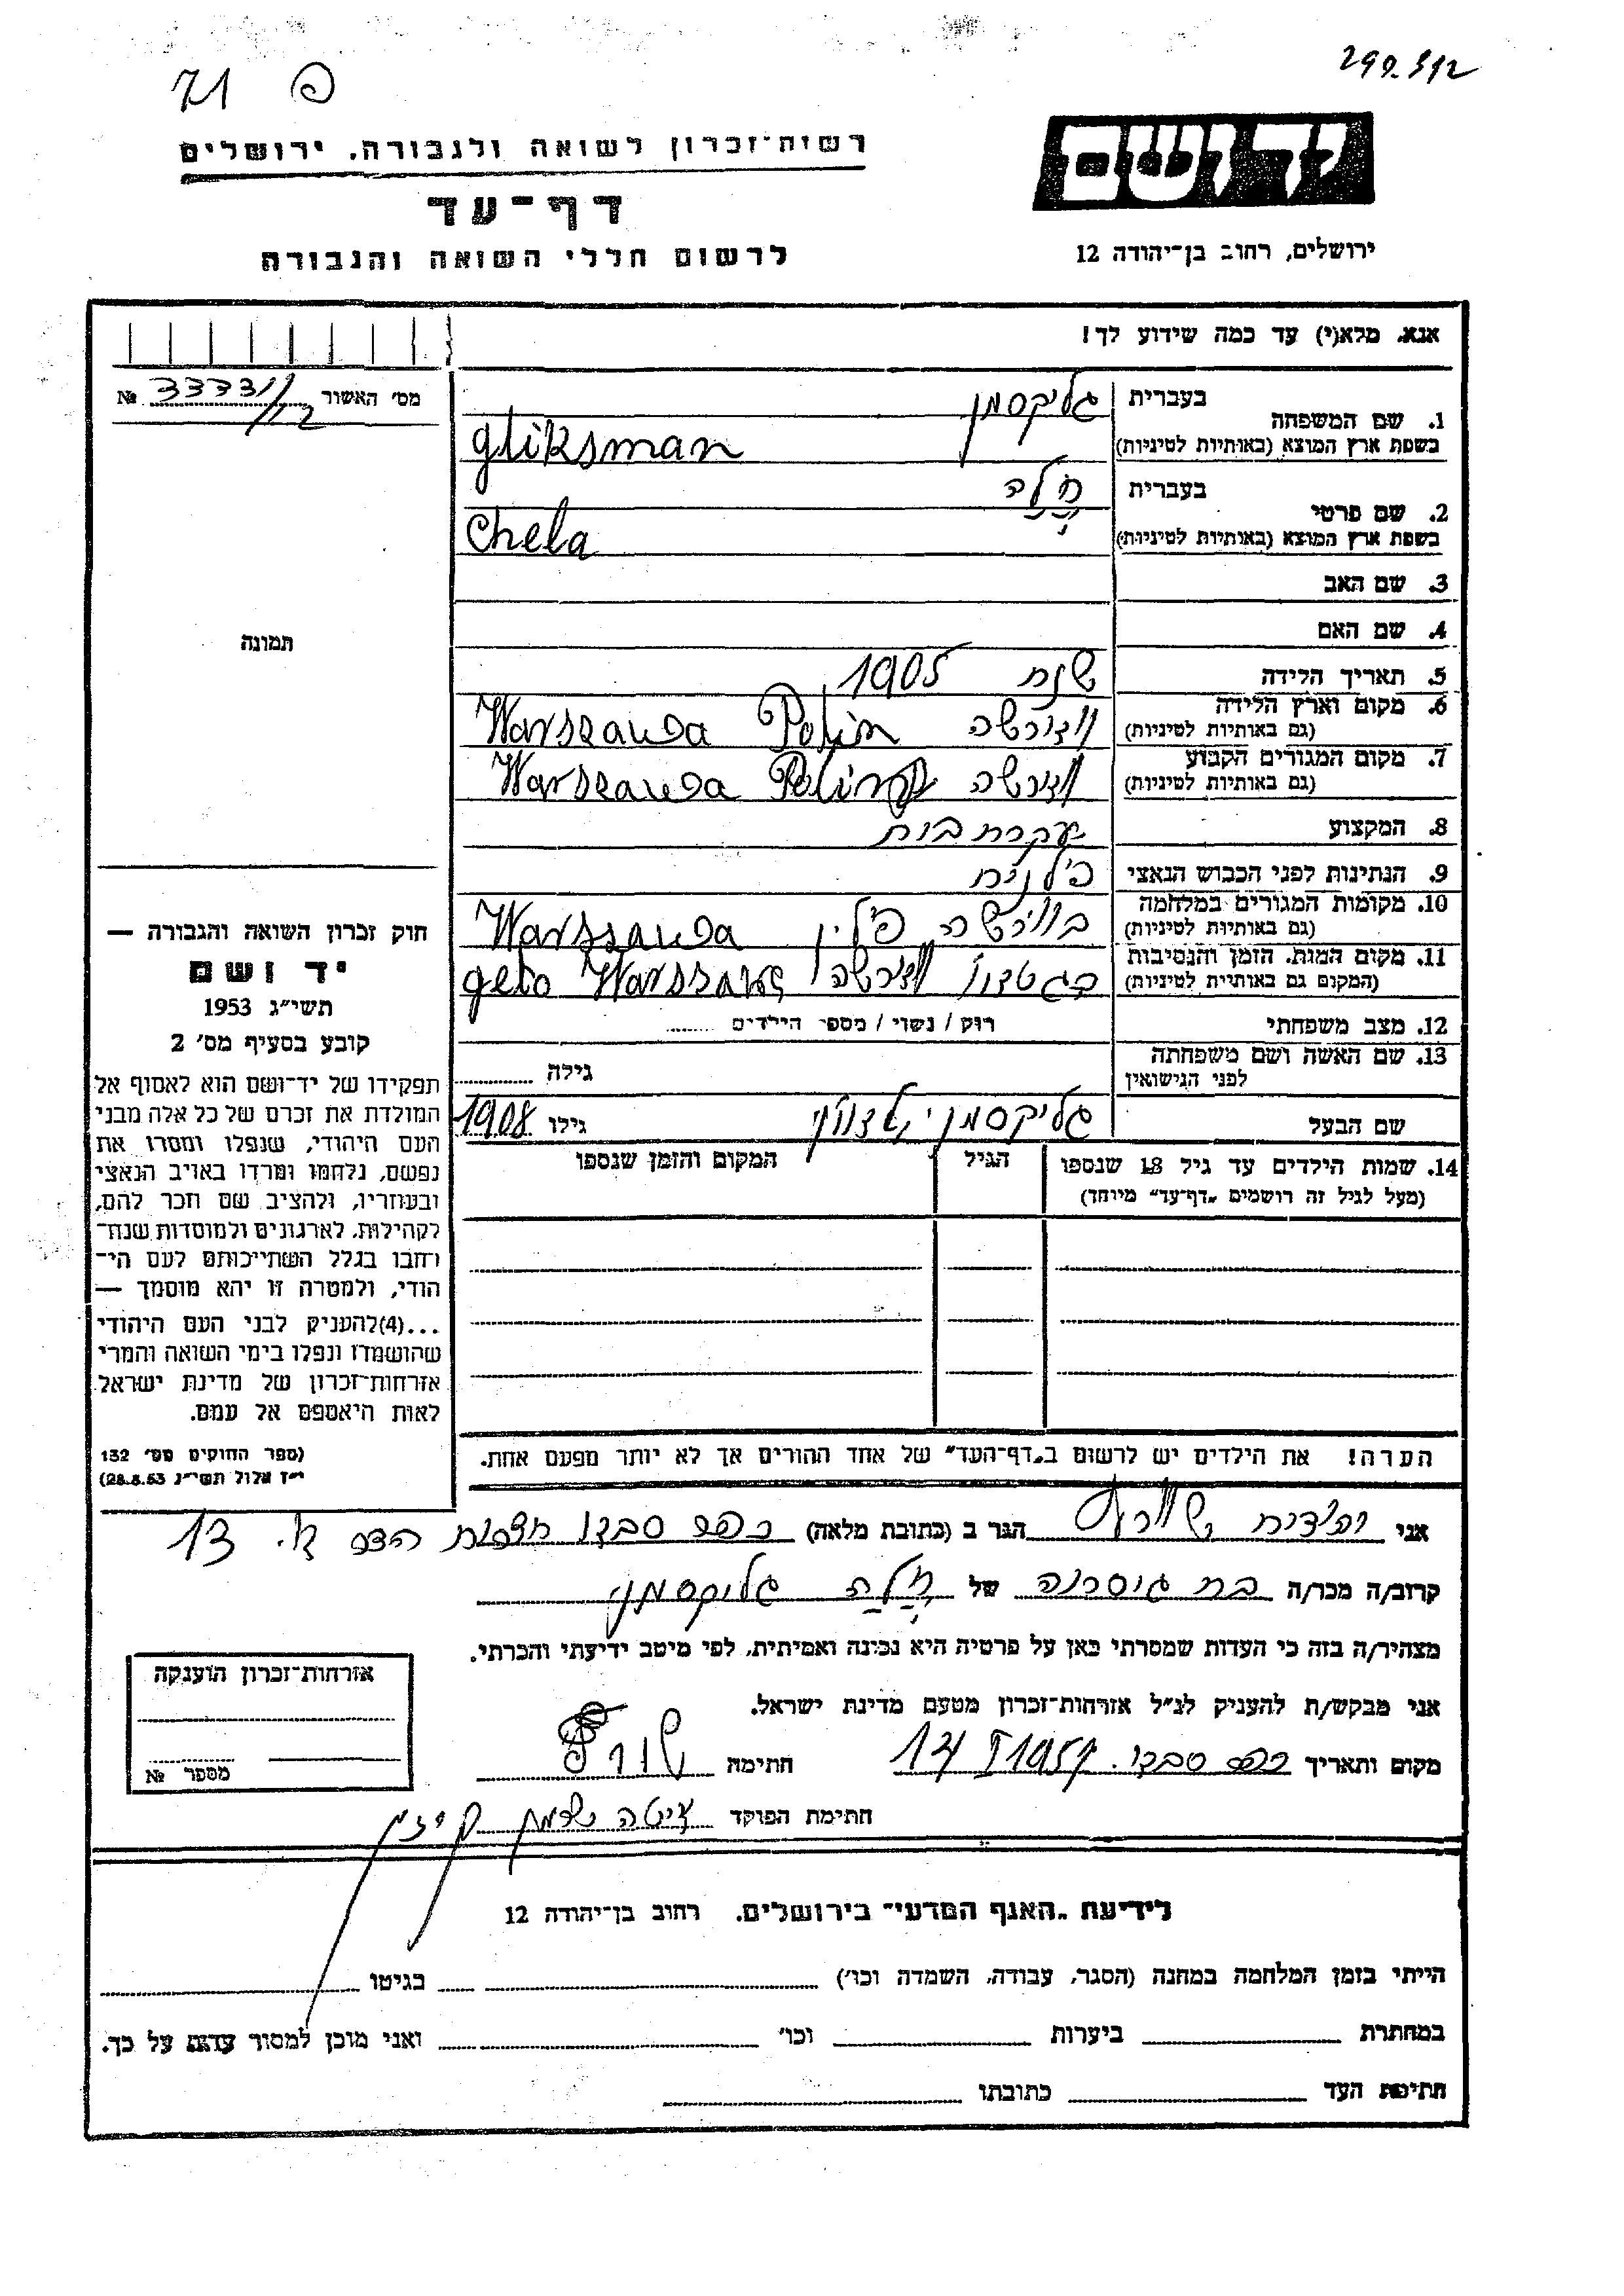 290.312
71 פ
יד ושם
רשות־זכרון לשואה ולגבורה, ירושלים
דף־עד
ירושלים, רחוב בן־יהודה 12
לרשום חללי השואה והגבורה
אנא, מלא(י) עד כמה שידוע לך!
מס׳ האשור № 33331/12
1. שם המשפחה
בעברית גליקסמן
בשפת ארץ המוצא (באותיות לטיניות) gliksman
2. שם פרטי
בעברית חלה
בשפת ארץ המוצא (באותיות לטיניות) Chela
3. שם האב
4. שם האם
תמונה
5. תאריך הלידה שנת 1905
6. מקום וארץ הלידה
(גם באותיות לטיניות) וורשה Polin Warszawa
7. מקום המגורים הקבוע
(גם באותיות לטיניות) וורשה Polin Warszawa
8. המקצוע עקרת בית
9. הנתינות לפני הכבוש הנאצי פולנית
10. מקומות המגורים במלחמה
(גם באותיות לטיניות) בוורשה פולין Warszawa
11. מקום המות, הזמן והנסיבות
(המקום גם באותיות לטיניות) בגטו וורשה geto Warszawa
12. מצב משפחתי רווק / נשוי / מספר הילדים
13. שם האשה ושם משפחתה
לפני הנישואין גילה
שם הבעל גליקסמן גילו 1908
14. שמות הילדים עד גיל 18 שנספו
(מעל לגיל זה רושמים „דף־עד” מיוחד)
הגיל
המקום והזמן שנספו
הערה! את הילדים יש לרשום ב„דף־העד” של אחד ההורים אך לא יותר מפעם אחת.
חוק זכרון השואה והגבורה —
יד ושם
תשי״ג 1953
קובע בסעיף מס׳ 2
תפקידו של יד־ושם הוא לאסוף אל
המולדת את זכרם של כל אלה מבני
העם היהודי, שנפלו ומסרו את
נפשם, נלחמו ומרדו באויב הנאצי
ובעוזריו, ולהציב שם וזכר להם,
לקהילות, לארגונים ולמוסדות שנח־
רבו בגלל השתייכותם לעם הי־
הודי, ולמטרה זו יהא מוסמך —
...(4) להעניק לבני העם היהודי
שהושמדו ונפלו בימי השואה והמרי
אזרחות־זכרון של מדינת ישראל
לאות היאספם אל עמם.
(ספר החוקים מס׳ 132
י״ז אלול תשי״ג 28.8.53)
אני הגר ב (כתובת מלאה) כפר סבא
קרוב/ה מכר/ה בת גיסתה של חלה גליקסמן
מצהיר/ה בזה כי העדות שמסרתי כאן על פרטיה היא נכונה ואמיתית, לפי מיטב ידיעתי והכרתי.
אני מבקש/ת להעניק לנ״ל אזרחות־זכרון מטעם מדינת ישראל.
מקום ותאריך כפר סבא חתימה
חתימת הפוקד
אזרחות־זכרון הוענקה
מספר №
לידיעת „האגף המדעי” בירושלים. רחוב בן־יהודה 12
הייתי בזמן המלחמה במחנה (הסגר, עבודה, השמדה וכו׳) בגיטו
במחתרת ביערות וכו׳ ואני מוכן למסור עדות על כך.
חתימת העד כתובתו